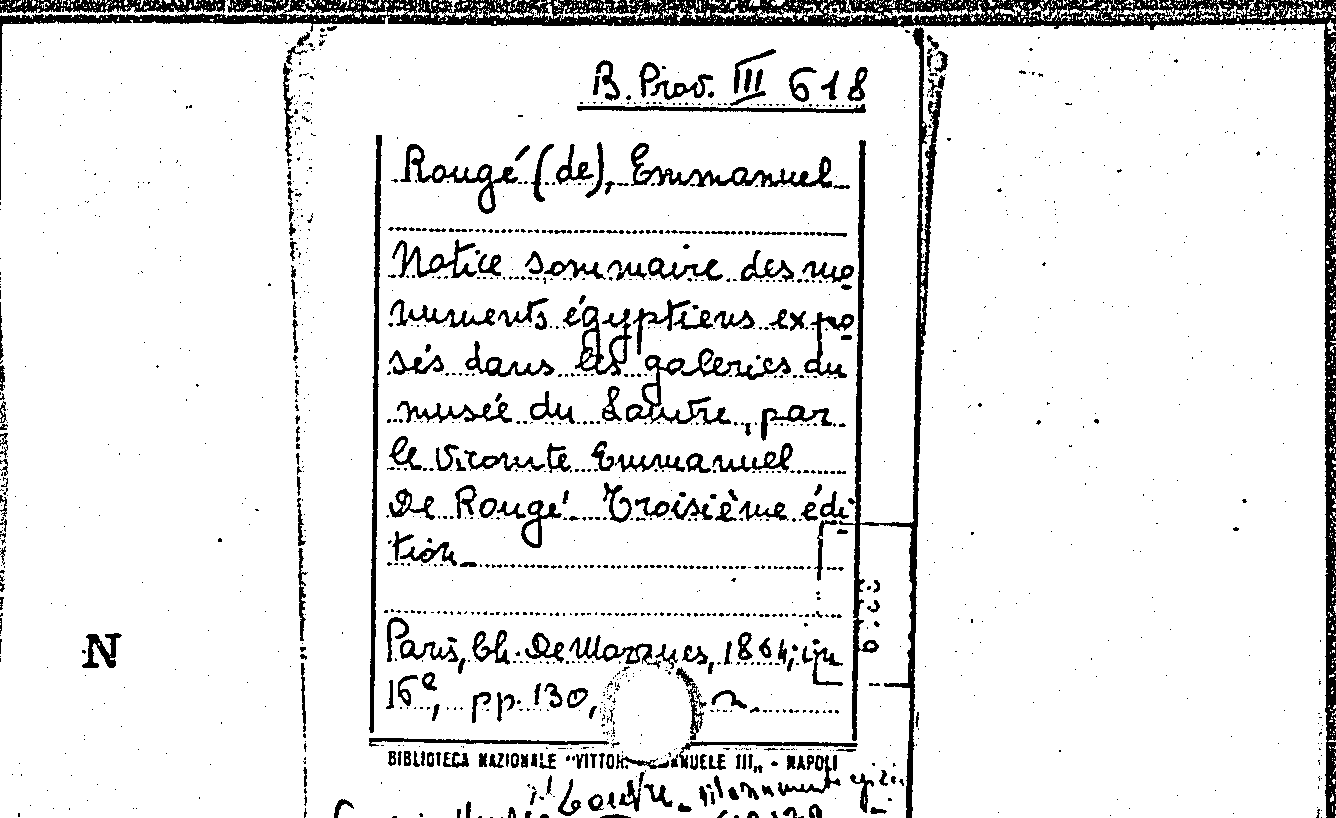 B. Prov. III 618
Rougé (de), Emmanuel
Notice sommaire des mo
numents égyptiens expo
sés dans les galeries du
musée du Louvre, par
le Vicomte Emmanuel
De Rougé. Troisième édi
tion_
Paris, Ch. De Mourgues, 1864; in
16º, pp. 130, n.
BIBLIOTECA NAZIONALE "VITTOR. ANUELE III„ - NAPOLI
Louvre - Monumenti egizi
N